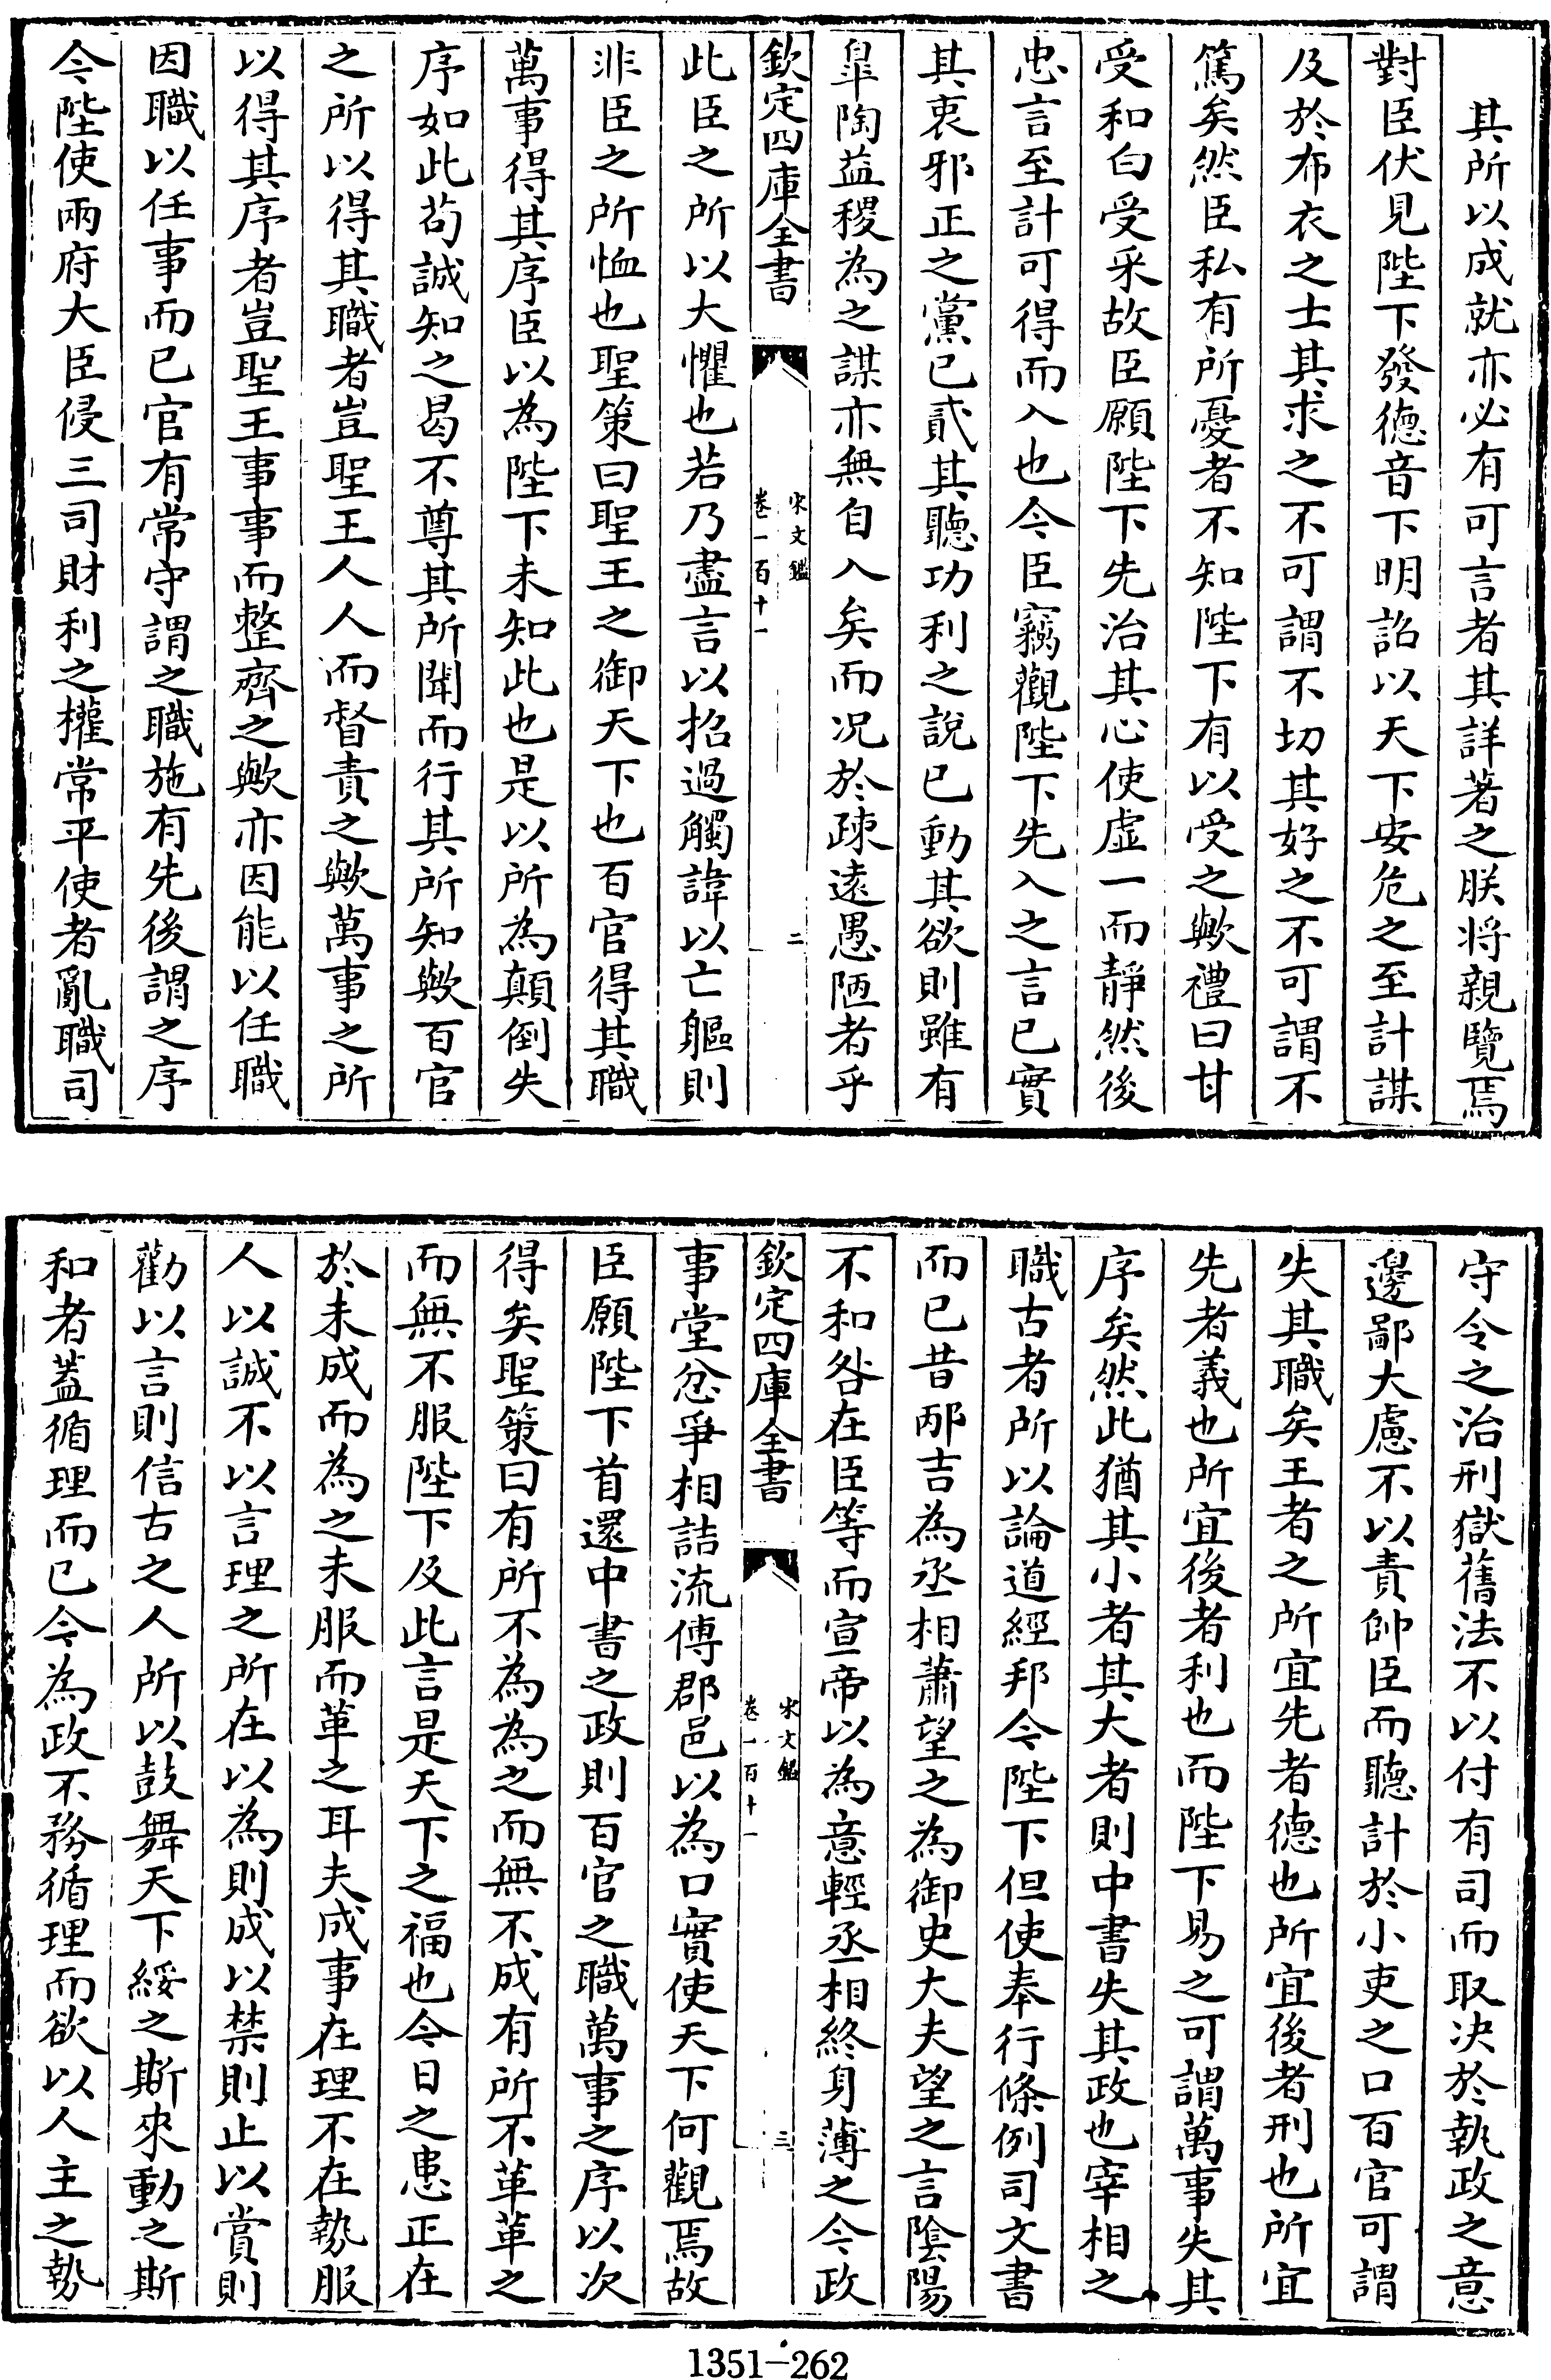 其所以成就亦必有可言者其詳著之朕将親覽焉
對臣伏見陛下發德音下明詔以天下安危之至計謀
及於布衣之士其求之不可謂不切其好之不可謂不
篤矣然臣私有所憂者不知陛下有以受之歟禮曰甘
受和白受采故臣願陛下先治其心使虛一而靜然後
忠言至計可得而入也今臣竊觀陛下先入之言已實
其衷邪正之黨已貳其聽功利之說已動其欲則雖有
皐陶益稷為之謀亦無自入矣而况於疎遠愚陋者乎
欽定四庫全書
宋文鑑
卷一百十一
二
此臣之所以大懼也若乃盡言以招過觸諱以亡軀則
非臣之所恤也聖策曰聖王之御天下也百官得其職
萬事得其序臣以為陛下未知此也是以所為顛倒失
序如此苟誠知之曷不尊其所聞而行其所知歟百官
之所以得其職者豈聖王人人而督責之歟萬事之所
以得其序者豈聖王事事而整齊之歟亦因能以任職
因職以任事而已官有常守謂之職施有先後謂之序
今陛使兩府大臣侵三司財利之權常平使者亂職司
守令之治刑獄舊法不以付有司而取决於執政之意
邊鄙大慮不以責帥臣而聽計於小吏之口百官可謂
失其職矣王者之所宜先者德也所宜後者刑也所宜
先者義也所宜後者利也而陛下易之可謂萬事失其
序矣然此猶其小者其大者則中書失其政也宰相之
職古者所以論道經邦今陛下但使奉行條例司文書
而已昔邴吉為丞相蕭望之為御史大夫望之言陰陽
不和咎在臣等而宣帝以為意輕丞相終身薄之今政
欽定四庫全書
宋文鑑
卷一百十一
三
事堂忿爭相詰流傳郡邑以為口實使天下何觀焉故
臣願陛下首還中書之政則百官之職萬事之序以次
得矣聖策曰有所不為為之而無不成有所不革革之
而無不服陛下及此言是天下之福也今日之患正在
於未成而為之未服而革之耳夫成事在理不在勢服
人以誠不以言理之所在以為則成以禁則止以賞則
勸以言則信古之人所以鼓舞天下綏之斯來動之斯
和者蓋循理而已今為政不務循理而欲以人主之勢
1351-262